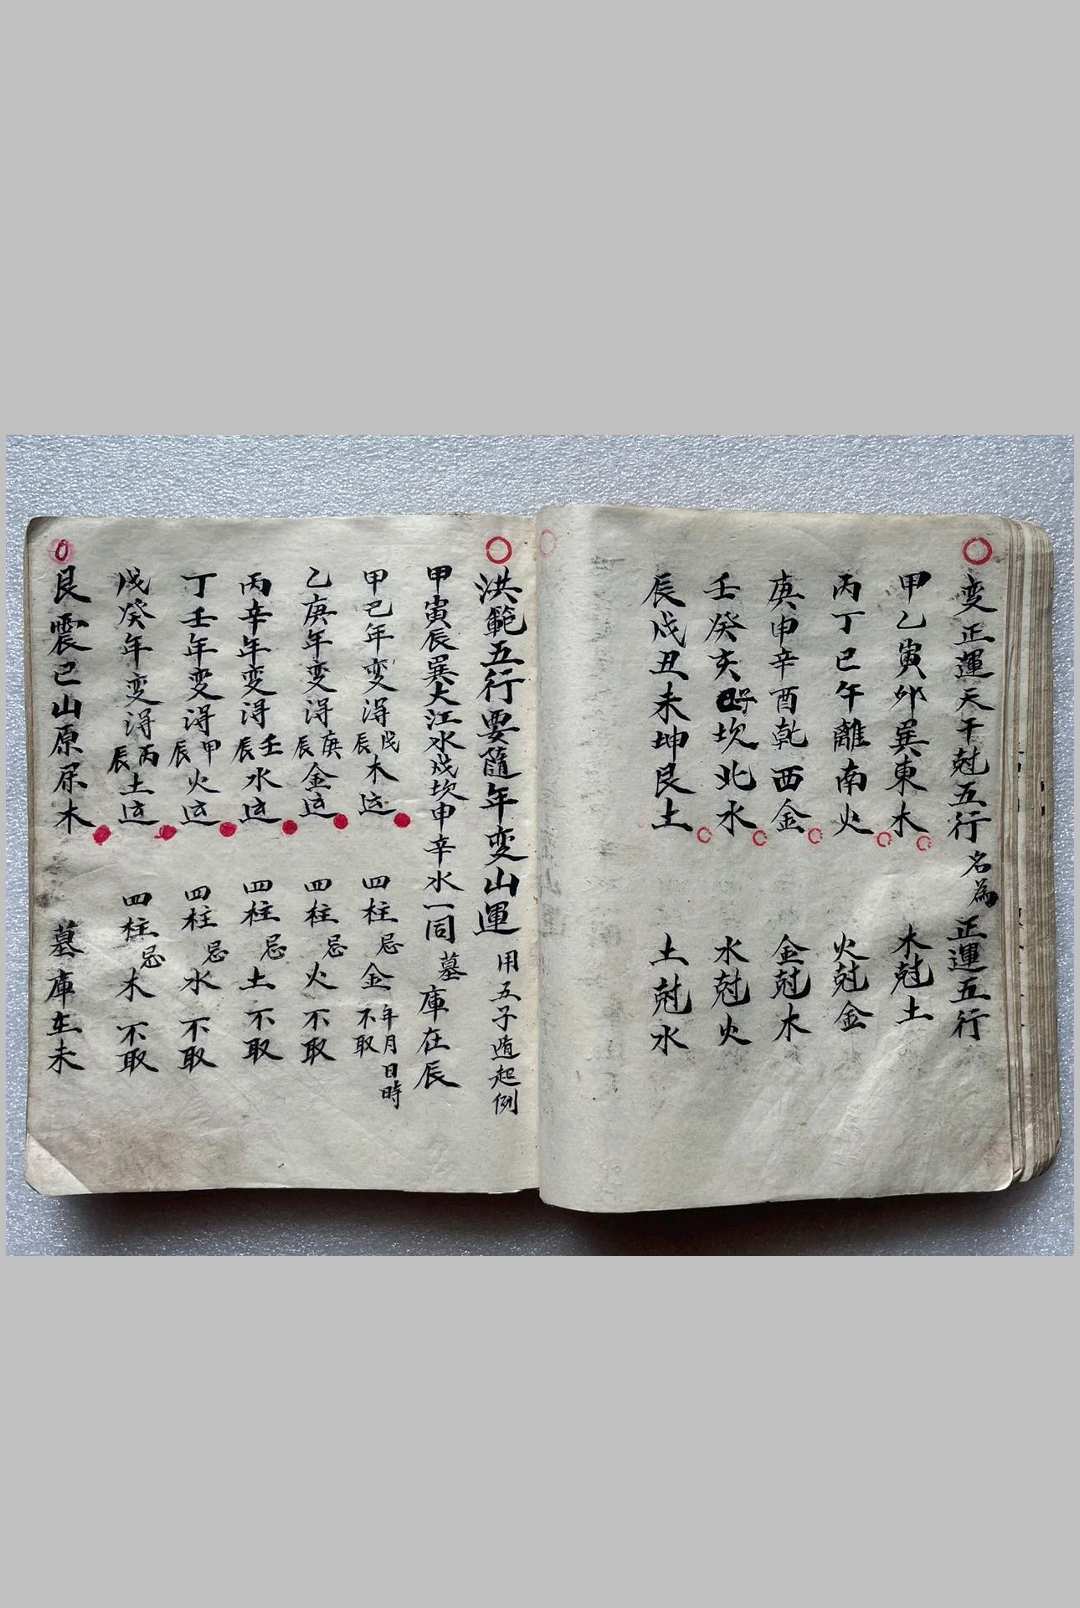 变正運天干尅五行名為正運五行
甲乙寅卯巽東木 木尅土
丙丁巳午離南火 火尅金
庚申辛酉乾西金 金尅木
壬癸亥子坎北水 水尅火
辰戌丑未坤艮土 土尅水
洪範五行要隨年变山運 用五子遁起例
甲寅辰巽大江水戌坎申辛水一同 墓庫在辰
甲己年变得戊辰木运 四柱忌金 年月日時不取
乙庚年变得庚辰金运 四柱忌火不取
丙辛年变得壬辰水运 四柱忌土不取
丁壬年变得甲辰火运 四柱忌水不取
戊癸年变得丙辰土运 四柱忌木不取
艮震巳山原屬木 墓庫在未